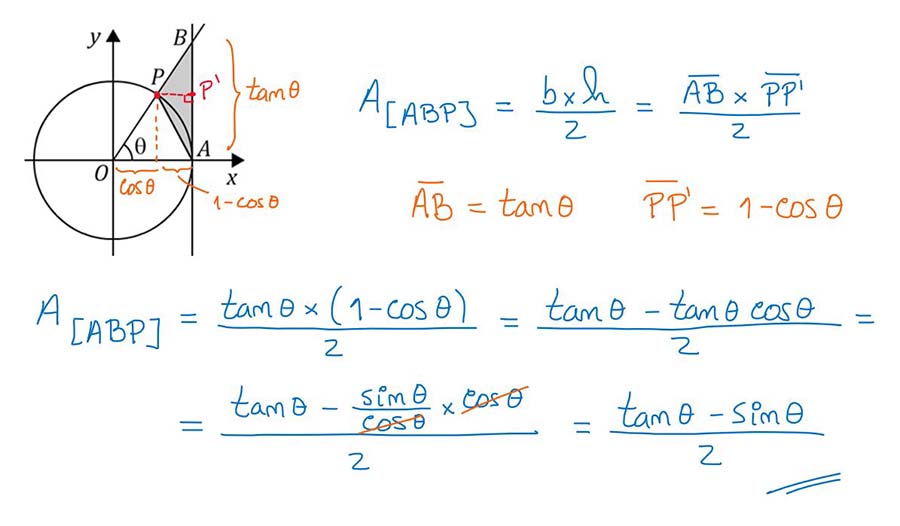 y
B
P
P'
tanθ
θ
A
O
x
cosθ
1-cosθ
A[ABP] = b×h/2 = A̅B̅ × P̅P̅'/2
A̅B̅ = tanθ P̅P̅' = 1-cosθ
A[ABP] = tanθ×(1-cosθ)/2 = tanθ - tanθ cosθ/2 =
= tanθ - sinθ/cosθ × cosθ/2 = tanθ - sinθ/2